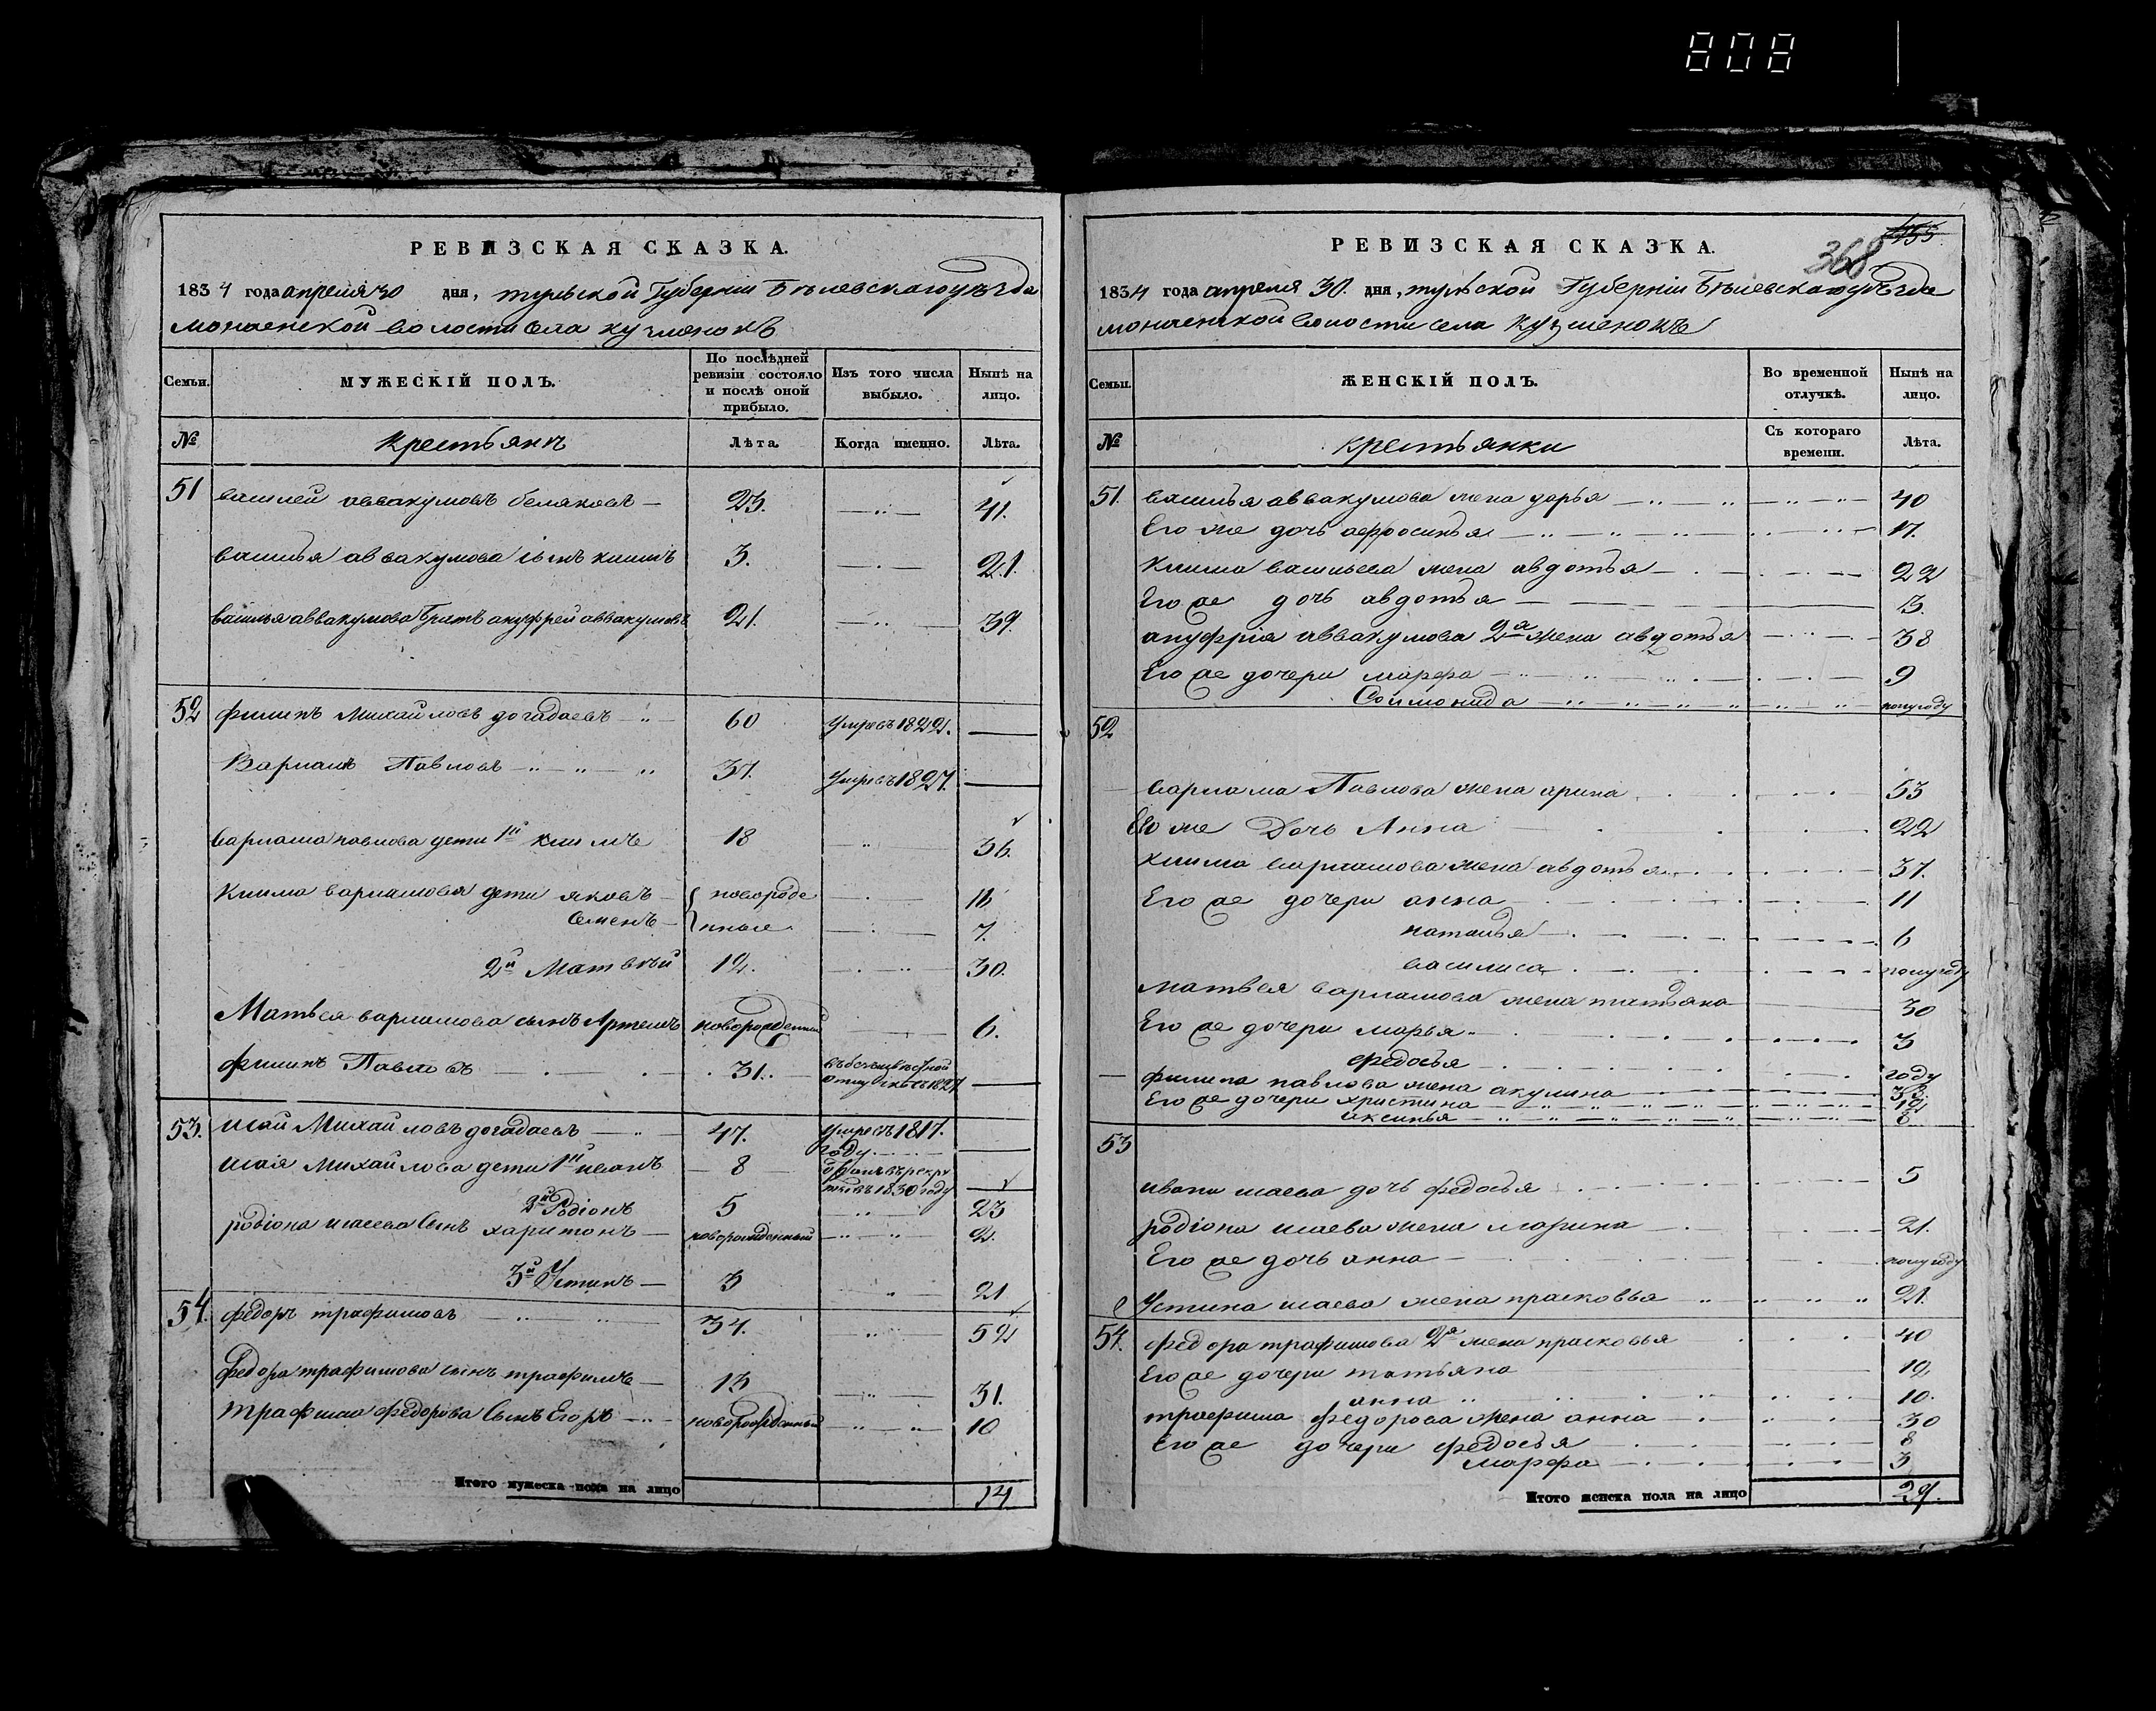 808
РЕВИЗСКАЯ СКАЗКА.
1834 года апреля 30 дня, тульской Губерніи Бѣлевскаго уѣзда
волости села кузменокъ
Семьи.
МУЖЕСКІЙ ПОЛЪ.
По послѣдней ревизіи состояло и послѣ оной прибыло.
Изъ того числа выбыло.
Нынѣ на лицо.
№
крестьянъ
Лѣта.
Когда именно.
Лѣта.
51 василей аввакумовъ беляковъ — 23. 41.
василья аввакумова сынъ климъ 3. 21.
василья аввакумова братъ ануфрей аввакумовъ 21. 39.
52 филипъ Михайловъ догадаевъ 60 умре въ 1822.
Варламъ Павловъ 37. умре въ 1827.
варлама павлова дети 1й климъ 18 36.
клима варламова дети яковъ { новороде
семенъ { нные 7.
2й Матвѣй 12. 30.
Матвея варламова сынъ Артемъ новорожденный 6.
филипъ Павловъ 31.
53. исай Михайловъ догадаевъ 47. умре въ 1817.
году
исая Михайлова дети 1й иванъ 8
1830 году
2й Родіонъ 5 23
родіона исаева сынъ харитонъ новорожденный 2.
3й Устинъ 3 21
54. федоръ трафимовъ 34. 52
федора трафимова сынъ трафимъ 13 31.
трафима федорова сынъ Егоръ новорожденный 10
Итого мужеска пола на лицо 14
155
368
РЕВИЗСКАЯ СКАЗКА.
1834 года апреля 30. дня, тульской Губерніи Бѣлевскаго уѣзда
волости села кузменокъ
Семьи.
ЖЕНСКІЙ ПОЛЪ.
Во временной отлучкѣ.
Нынѣ на лицо.
№
крестьянки
Съ котораго времени.
Лѣта.
51. василья аввакумова жена дарья 40
Его же дочь афросинья 17.
клима васильева жена авдотья 22
Его же дочь авдотья 3.
ануфрія аввакумова 2я жена авдотья 38
Его же дочери марфа 9
Соломонида полугоду
52
варлама Павлова жена арина 53
Его же Дочь Анна 22
клима варламова жена авдотья 37.
Его же дочери анна 11
наталья 6
василиса полугоду
матвея варламова жена татьяна 30
Его же дочери марья 3
федосья году
филипа павлова жена акулина
Его же дочери христина 12
аксинья
53
ивана исаева дочь федосья 5
родіона исаева жена марина 21.
Его же дочь анна полугоду
Устина исаева жена прасковья 21.
54. федора трафимова 2я жена прасковья 40
Его же дочери татьяна 12
анна 10.
трафима федорова жена анна 30
Его же дочери федосья 8
марфа 3
Итого женска пола на лицо 27.